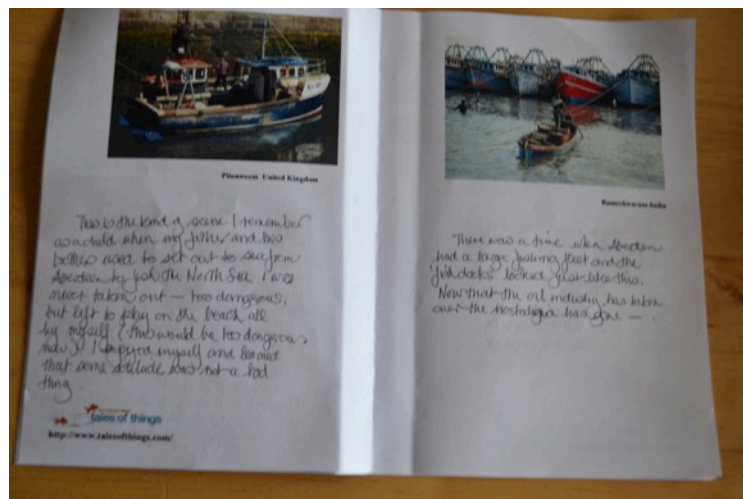 Pittenweem United Kingdom
This is the kind of scene I remember
as a child when my father and his
brothers used to set out to sea from
Aberdeen to fish the North Sea I was
never taken out — too dangerous,
but left to play on the beach all
by myself (this would be too dangerous
now)! I enjoyed myself and learned
that some solitude was not a bad
thing.
tales of things
http://www.talesofthings.com/
Rameshwaram India
There was a time when Aberdeen
had a large fishing fleet and the
fish docks looked just like this.
Now that the oil industry has taken
over the nostalgia has gone —.